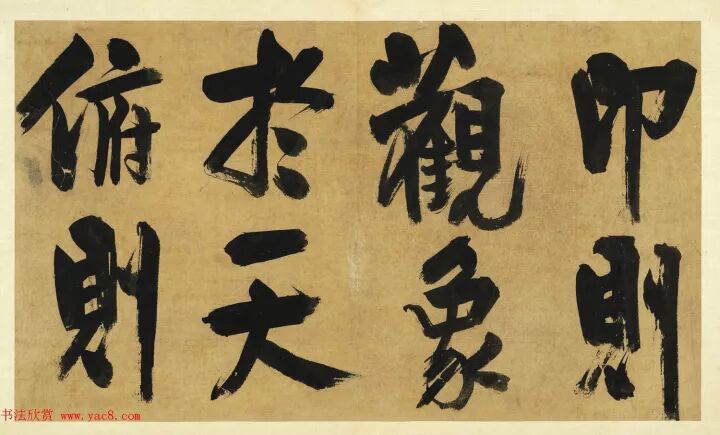 卬則
觀象
於天
俯則
书法欣赏 www.yac8.com